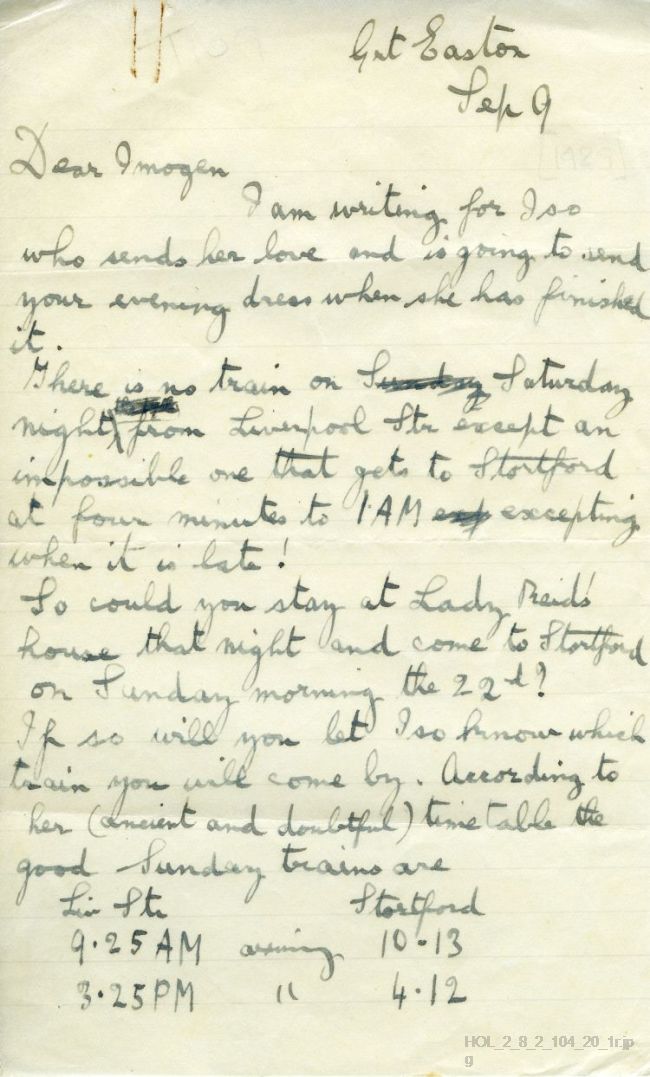 Grt Easton
Sep 9
Dear Imogen
I am writing for Iso
who sends her love and is going to send
your evening dress when she has finished
it.
There is no train on Sunday Saturday
night from Liverpool Str except an
impossible one that gets to Stortford
at four minutes to 1 AM exp excepting
when it is late!
So could you stay at Lady Reid's
house that night and come to Stortford
on Sunday morning the 22nd?
If so will you let Iso know which
train you will come by. According to
her (ancient and doubtful) time table the
good Sunday trains are
Liv Str Stortford
9.25 AM arriving 10.13
3.25 PM " 4.12
HOL_2_8_2_104_20_1r.jp
g